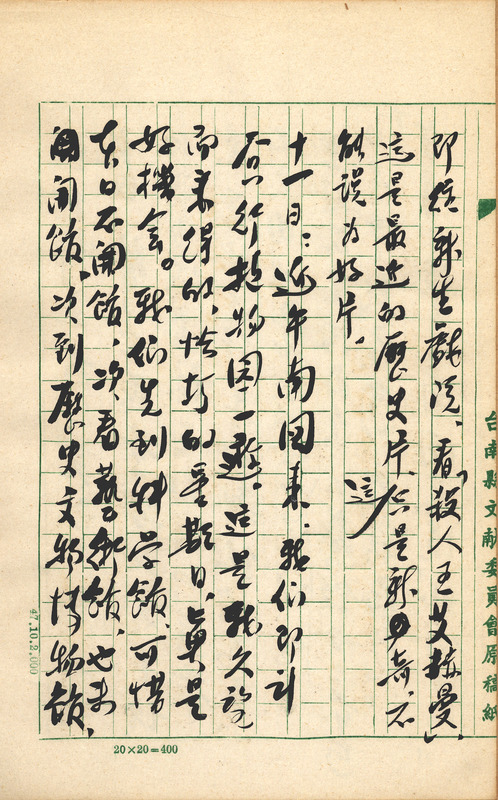 即往新生戲院、看「殺人王艾赫曼」、
這是最近的歷史片、只是新奇、不
能誤為好片。
這
十一日:近午南国来、我们即計
行植物園一遊。這是我久
而未得的、恰好的星期日、真是
好機會。我们先到科学館、可惜
本日不開館、次看藝術館、也未
開館、次到歷史文物博物館、
台南縣文献委員會原稿紙
47.10.2,000
20×20=400